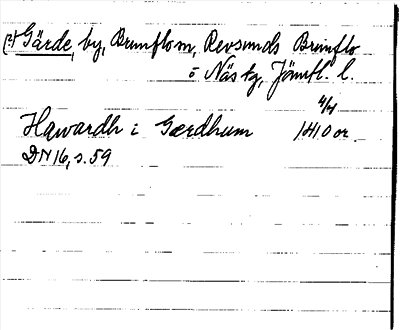 (2) Gärde, by, Brunflo sn, Revsunds Brunflo
o Näs tg, Jämtl. l.
Hawardh i Gærdhum 4/4 1410 or.
DN 16, s. 59